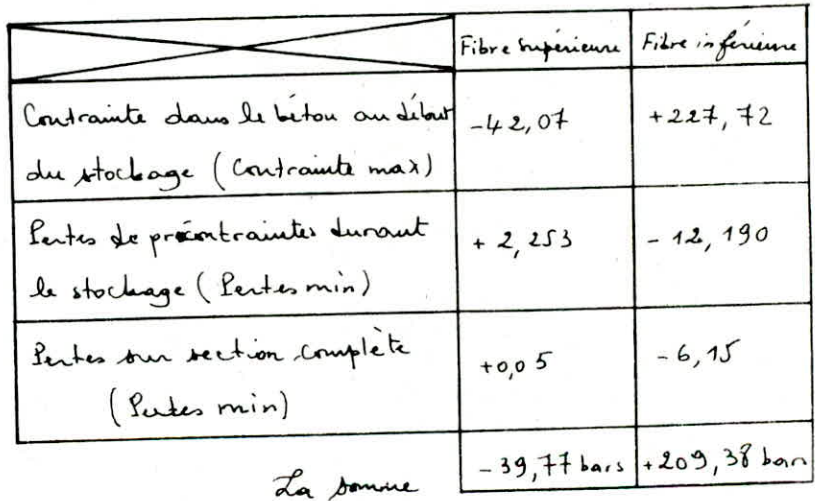 Fibre supérieure Fibre inférieure
Contrainte dans le béton au début
du stockage (Contrainte max) -42,07 +227,72
Pertes de précontraintes durant
le stockage (Pertes min) +2,253 -12,190
Pertes sur section complète
(Pertes min) +0,05 -6,15
La somme -39,77 bars +209,38 bars